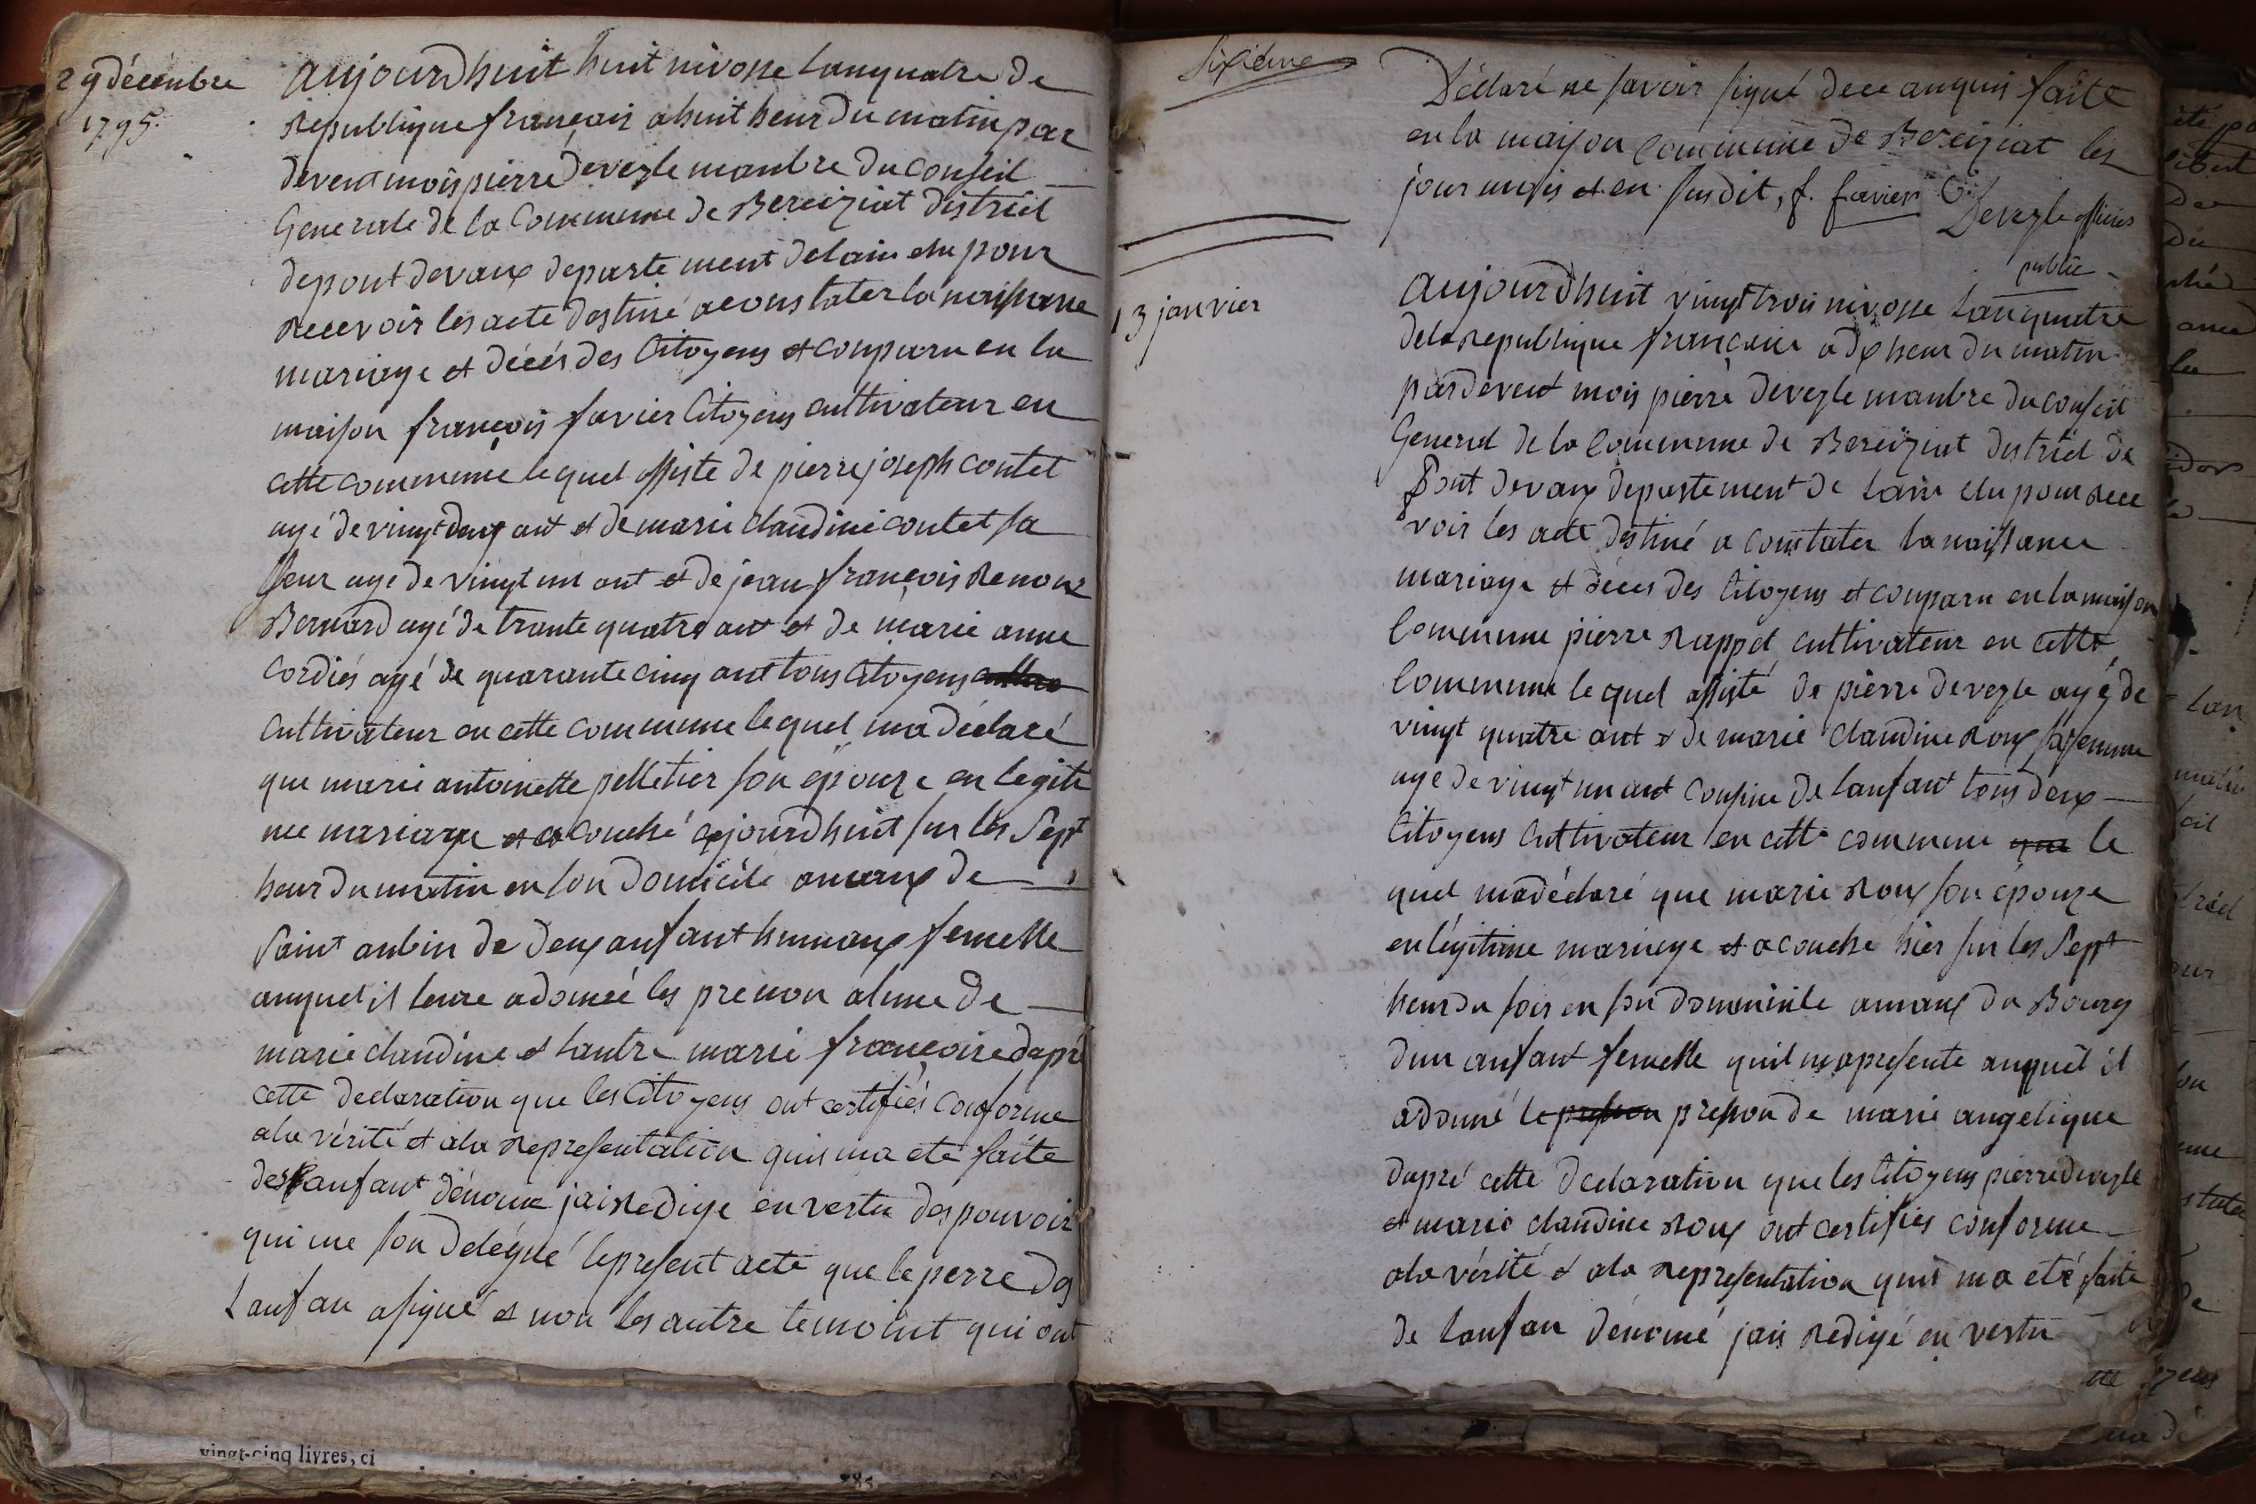 29 décembre
1795.
aujourdhuit huit nivosse lanquatre de
Republique françois a huit heur du matin par
devent mois pierre devezle manbre du conseil
Generale de la Commune de Bereiziat district
de pont devaux departement delain elu pour
Recevoir les acte destiné a constater la naissance
mariage et décés des Citoyens et conparu en la
maison françois favier Citoyens cultivateur en
cette commune le quel assiste de pierre joseph contet
agé de vingt deux ant et de marie claudine contet sa
seur agé de vingt un ant et de jean françois Renoux
Bernard agé de trante quatre ant et de marie anne
Cordiés agé de quarante cinq ant tous Citoyens
Cultivateur en cette commune le quel ma déclaré
que marie antoinette pelletier son épouze en legiti
me mariage et acouché cejourdhuit sur les Sept
heur du matin en son domicile amaux de
saint aubin de deux anfant humaux femelle
auquel il leure adonnée les prenon alune de
marie claudine et lautre marie françoise dapré
cette declaration que les Citoyens ont certifiés conforme
ala vérité et ala Representation quis ma eté faite
des anfant dénoué jais Redige en vertu des pouvoir
qui me son delégué le present acte que le perre des
Lanfan asigné et non les autre temoint qui ont
vingt-cinq livres, ci
Sixième
Déclaré ne savoir signé de ce anquis faite
en la maison Commune de Bereiziat les
jour mois et en susdit, f. favier
Devezle officiés
public
13 janvier
aujourdhuit vingt trois nivosse Lanquatre
dela Republique françoise a dix heur du matin
pardevent mois pierre devezle manbre du conseil
General de la Commune de Bereiziat district de
Pont devaux departement de Lain elu pour Rece
voir les acte destiné a constater la naissance
mariage et déces des Citoyens et conparu en la maison
Commune pierre Rappet cultivateur en cette
Commune le quel assisté de pierre devezle agé de
vingt quatre ant et de marie claudine Roux sa femme
agé de vingt un ant cousine de lanfant tous deux
Citoyens Cultivateur en cette commune que le
quel madéclaré que marie Roux son épouze
en légitime mariage et acouché hier sur les Sept
heur du soir en son domminile amaux du Bourg
dun anfant femelle quil mapresente auquel il
adonné le presson presson de marie angelique
dapré cette declaration que les Citoyens pierre devezle
et marie claudine Roux ont certifiés conforme
ala vérité et ala Representation quis ma eté faite
de lanfan dénomé jais Redigé en vertu